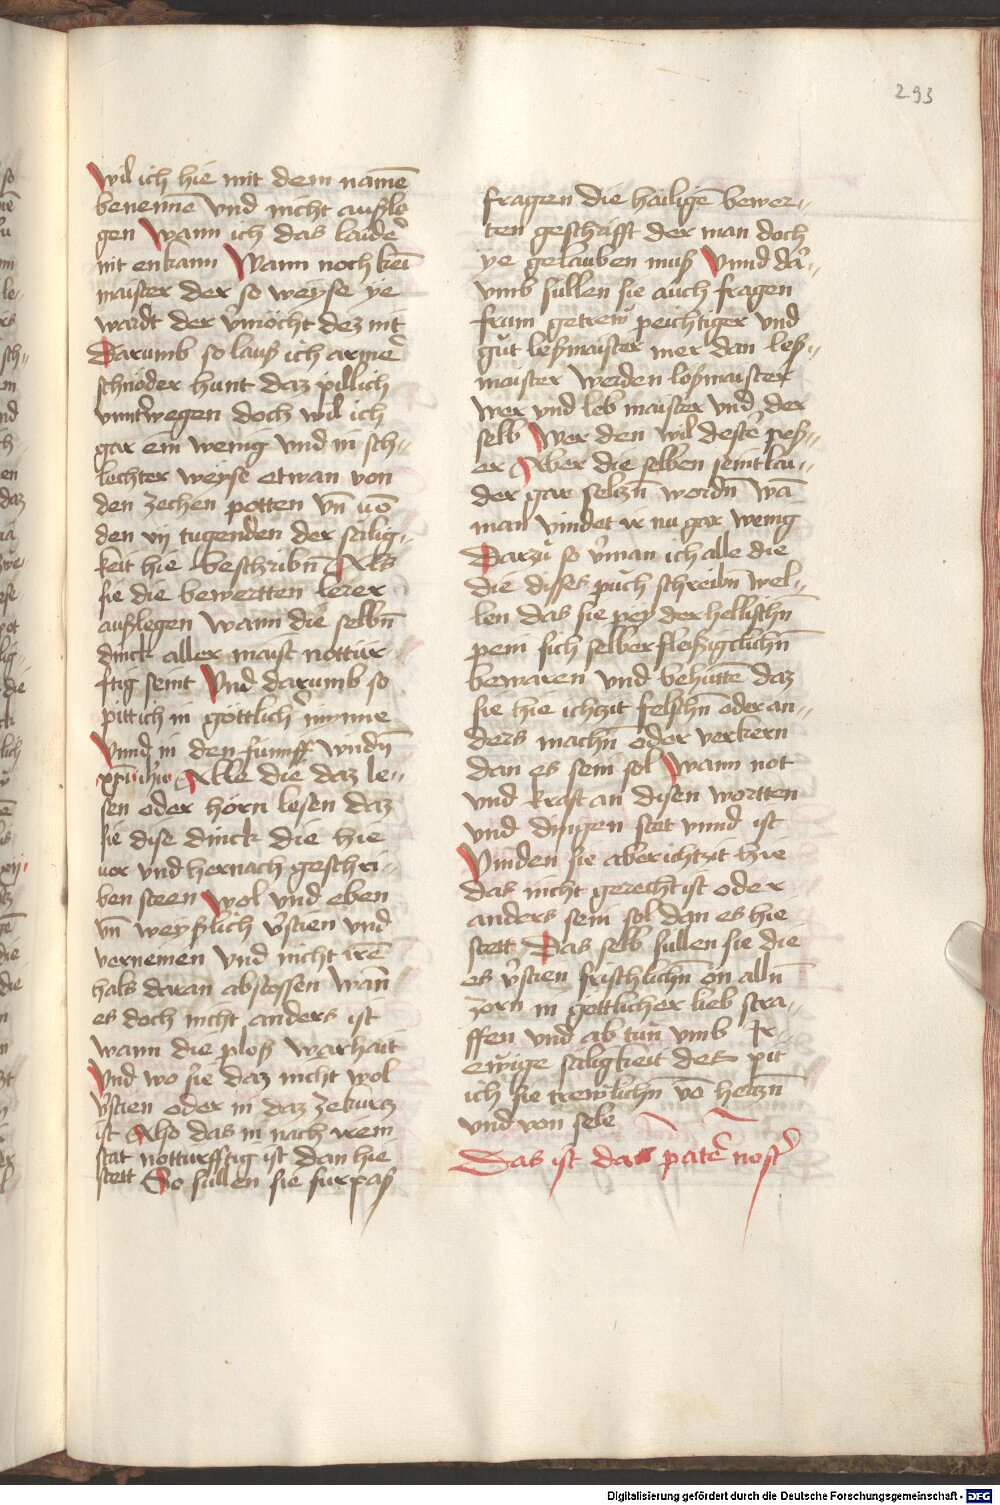 293
wil ich hie mit dem namē
benennē vnd nicht außle
gen Wann ich das laider
nit enkann Wann noch kei
maister der so weyse ye
wardt der vermöcht dez nit
Darumb so lauß ich armer
schnöder hunt daz pillich
vnnterwegen doch wil ich
gar ein wenig vnd in sch-
lechter weyse etwan von
den zechen potten vn̄ vō
den vij tugenden der sälig-
keit hie beschribn̄ Als
sie die bewertten lerer
außlegen wann die selbn̄
dinck aller maist nottür
ftig seint Vnd darumb so
pitt ich in göttlicher mynne
Vnnd in den fünff wndn̄
xp̄i ih̄u Alle die daz le-
sen oder hörn lesen daz
sie dise dinck die hie
vor vnd hernach geschri-
ben steen wol vnd eben
vn̄ weyßlich verstien vnd
vernemen vnd nicht irē
hals daran abstossen wan̄
es doch nicht anders ist
wann die ploß warhait
Vnd wo sie daz nicht wol
verstien oder in daz ze kurtz
ist Also das in nach irem
stat notturfftig ist dan hie
stett So süllen sie furpaß
fragen die hailigē bewer-
ten geschrifft der man doch
ye gelauben muß Vnnd dar-
vmb süllen sie auch fragen
frum getrew peichtiger vnd
gut leßmaister mer dan leß-
maister werden
wer vnd leb maister vnd der
selb Wer den wil dester peß-
er Aber die selben seint lai-
der gar seltzn̄ wordn̄ wā
man vindet ir nu gar wenig
Darzů so verman ich alle die
die disses půch schreibn̄ wel-
len das sie pey der hellischn̄
pein sich selber fleißigclichn̄
bewaren vnd behuttē daz
sie hie ichtzit felschn̄ oder an-
ders machn̄ oder verkern
dan es sein sol Wann not
vnd kraft an disen wortten
vnd dingen stet vnnd ist
Vinden sie aber ichtzit hie
das nicht gerecht ist oder
anders sein sol dan es hie
stett Das selb sullen sie die
es verstien frischlichn̄ on alln̄
zorn in göttlicher lieb stra-
ffen vnd ab tun vmb Ir
ewige säligkeit des pit
ich sie trewlichn̄ vō hertzn̄
vnd von sele
Das ist das pater noster
Digitalisierung gefördert durch die Deutsche Forschungsgemeinschaft - DFG